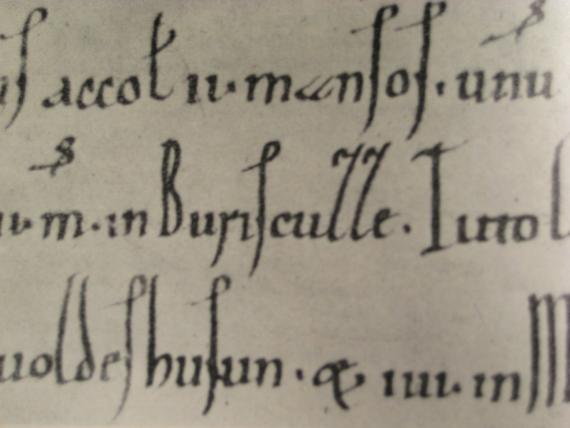 accoł ii· manſoſ· unū
m· in Buriſculle·
uoldeſhuſun· & iiii· in